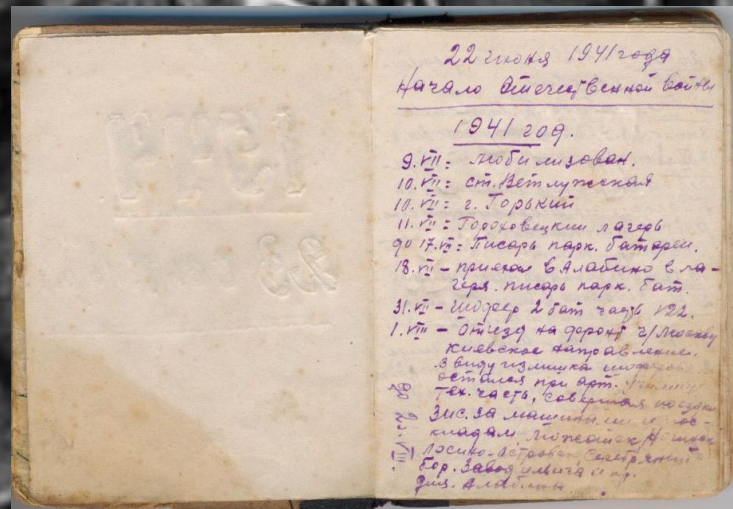 22 июня 1941 года
Начало Отечественной войны
1941 год.
9.VII = мобилизован.
10.VII = ст. Ветлужская
10.VII = г. Горький
11.VII = Гороховецкий лагерь
до 17.VII = Писарь парк. батареи.
18.VII - приехал в Алабино в ла-
геря. писарь парк. бат.
31.VII - шофер 2 бат часть
1.VIII - отъезд на фронт ч/Москву
киевское направление.
Ввиду излишка
остался при арт.
тех. часть, совершая
до 25.VIII.
Зис. за машинами
складам, Можайск
Лосино-Островск
бор. Завод Ильича и пр.